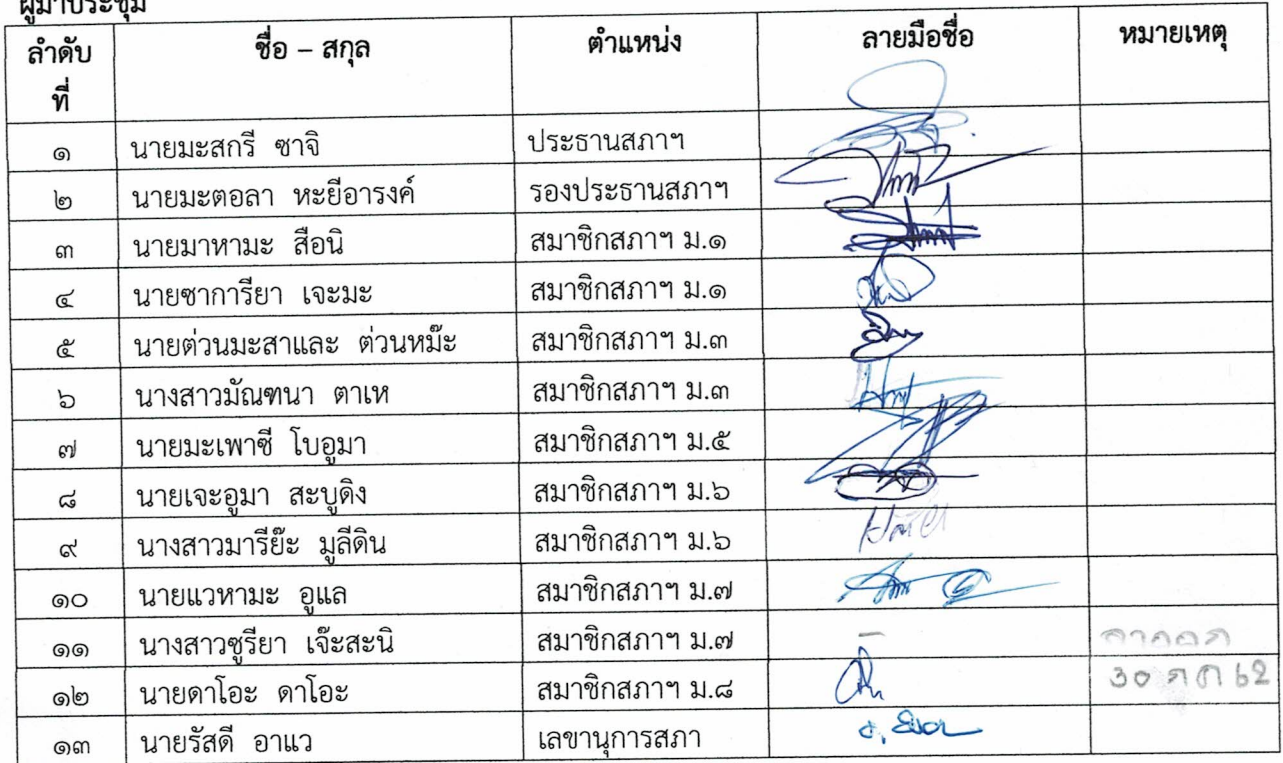 ผู้มาประชุม
ลำดับที่ ชื่อ – สกุล ตำแหน่ง ลายมือชื่อ หมายเหตุ
๑ นายมะสกรี ซาจิ ประธานสภาฯ
๒ นายมะตอลา หะยีอารงค์ รองประธานสภาฯ
๓ นายมาหามะ สือนิ สมาชิกสภาฯ ม.๑
๔ นายซาการียา เจะมะ สมาชิกสภาฯ ม.๑
๕ นายต่วนมะสาและ ต่วนหม๊ะ สมาชิกสภาฯ ม.๓
๖ นางสาวมัณฑนา ตาเห สมาชิกสภาฯ ม.๓
๗ นายมะเพาซี โบอูมา สมาชิกสภาฯ ม.๕
๘ นายเจะอูมา สะบูดิง สมาชิกสภาฯ ม.๖
๙ นางสาวมารีย๊ะ มูลีดิน สมาชิกสภาฯ ม.๖
๑๐ นายแวหามะ อูแล สมาชิกสภาฯ ม.๗
๑๑ นางสาวซูรียา เจ๊ะสะนิ สมาชิกสภาฯ ม.๗ – ลาออก
๑๒ นายดาโอะ ดาโอะ สมาชิกสภาฯ ม.๘ 30 62
๑๓ นายรัสดี อาแว เลขานุการสภา